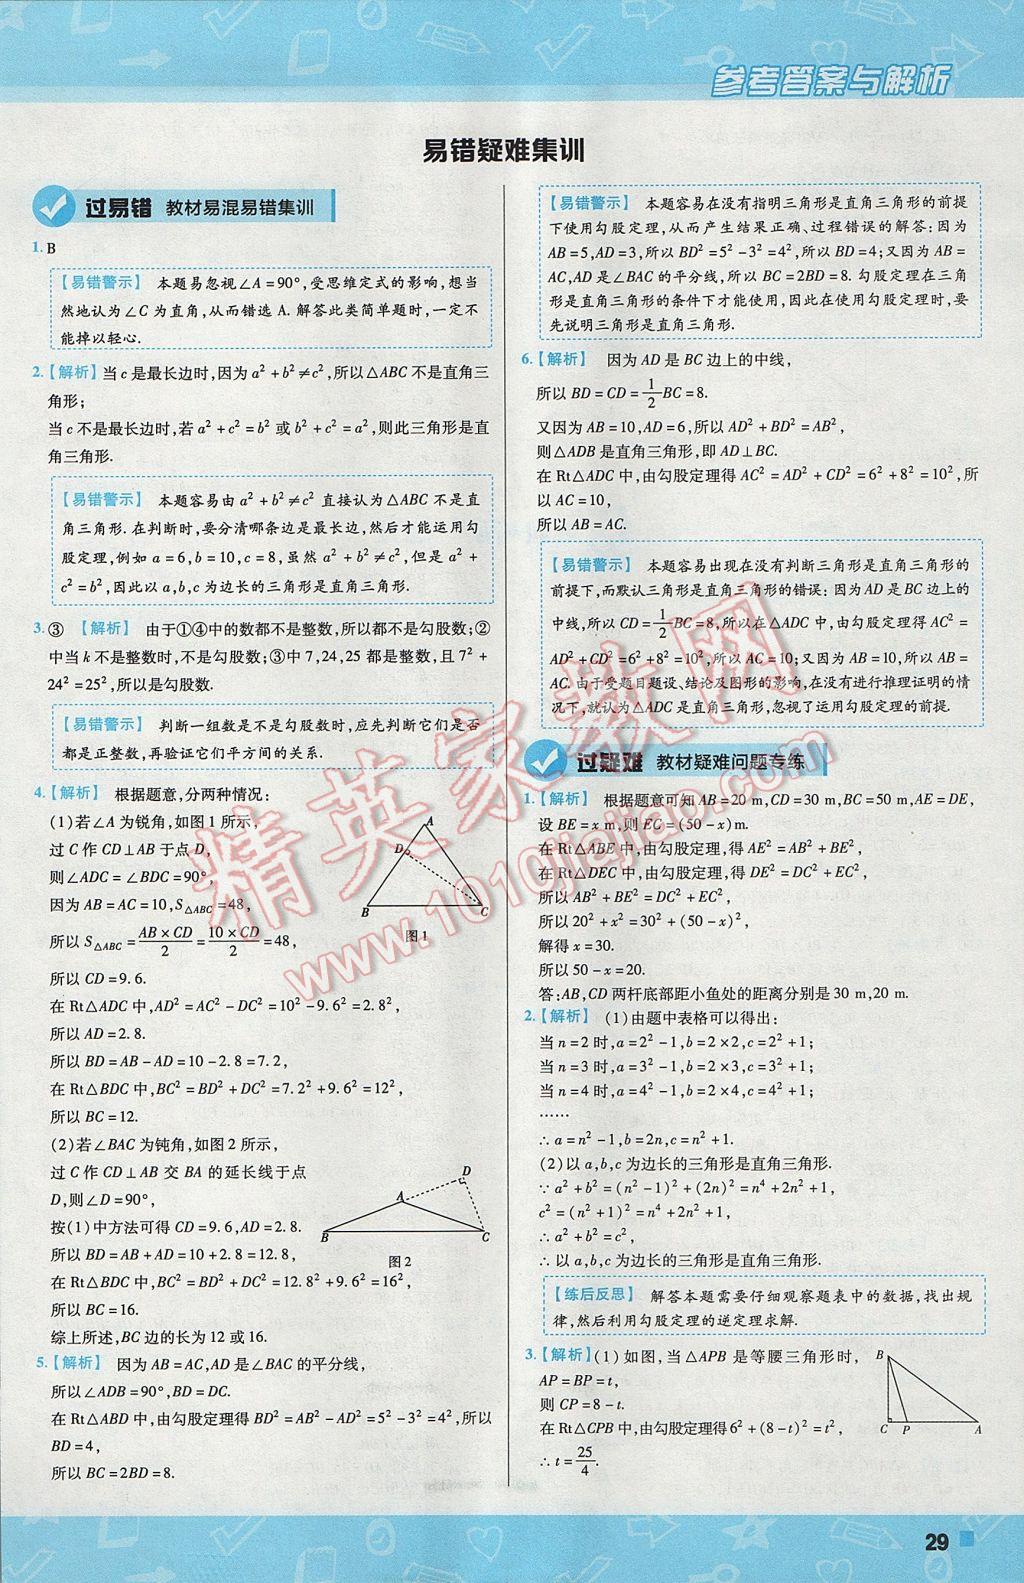 参考答案与解析
易错疑难集训
过易错 教材易混易错集训
1. B
【易错警示】 本题易忽视∠A=90°,受思维定式的影响,想当
然地认为∠C为直角,从而错选 A. 解答此类简单题时,一定不
能掉以轻心.
2.【解析】当c是最长边时,因为a²+b²≠c²,所以△ABC不是直角三
角形;
当c不是最长边时,若a²+c²=b²或b²+c²=a²,则此三角形是直
角三角形.
【易错警示】 本题容易由a²+b²≠c²直接认为△ABC不是直
角三角形.在判断时,要分清哪条边是最长边,然后才能运用勾
股定理,例如a=6,b=10,c=8,虽然a²+b²≠c²,但是a²+
c²=b²,因此以a,b,c为边长的三角形是直角三角形.
3. ③ 【解析】 由于①④中的数都不是整数,所以都不是勾股数;②
中当k不是整数时,不是勾股数;③中7,24,25都是整数,且7²+
24²=25²,所以是勾股数.
【易错警示】 判断一组数是不是勾股数时,应先判断它们是否
都是正整数,再验证它们平方间的关系.
4.【解析】 根据题意,分两种情况:
(1)若∠A为锐角,如图1所示,
过C作CD⊥AB于点D,
则∠ADC=∠BDC=90°,
因为AB=AC=10,S△ABC=48,
所以S△ABC=AB×CD/2=10×CD/2=48,
所以CD=9.6.
在Rt△ADC中,AD²=AC²-DC²=10²-9.6²=2.8²,
所以AD=2.8.
所以BD=AB-AD=10-2.8=7.2,
在Rt△BDC中,BC²=BD²+DC²=7.2²+9.6²=12²,
所以BC=12.
A
D
B
C
图1
(2)若∠BAC为钝角,如图2所示,
过C作CD⊥AB交BA的延长线于点
D,则∠D=90°,
按(1)中方法可得CD=9.6,AD=2.8.
所以BD=AB+AD=10+2.8=12.8,
在Rt△BDC中,BC²=BD²+DC²=12.8²+9.6²=16²,
所以BC=16.
综上所述,BC边的长为12或16.
D
A
B
C
图2
5.【解析】 因为AB=AC,AD是∠BAC的平分线,
所以∠ADB=90°,BD=DC.
在Rt△ABD中,由勾股定理得BD²=AB²-AD²=5²-3²=4²,所以
BD=4,
所以BC=2BD=8.
【易错警示】 本题容易在没有指明三角形是直角三角形的前提
下使用勾股定理,从而产生结果正确、过程错误的解答:因为
AB=5,AD=3,所以BD²=5²-3²=4²,所以BD=4;又因为AB=
AC,AD是∠BAC的平分线,所以BC=2BD=8.勾股定理在三角
形是直角三角形的条件下才能使用,因此在使用勾股定理时,要
先说明三角形是直角三角形.
6.【解析】 因为AD是BC边上的中线,
所以BD=CD=1/2BC=8.
又因为AB=10,AD=6,所以AD²+BD²=AB²,
则△ADB是直角三角形,即AD⊥BC.
在Rt△ADC中,由勾股定理得AC²=AD²+CD²=6²+8²=10²,所
以AC=10,
所以AB=AC.
【易错警示】 本题容易出现在没有判断三角形是直角三角形的
前提下,而默认三角形是直角三角形的错误:因为AD是BC边上的
中线,所以CD=1/2BC=8,所以在△ADC中,由勾股定理得AC²=
AD²+CD²=6²+8²=10²,所以AC=10;又因为AB=10,所以AB=
AC.由于受题目题设、结论及图形的影响,在没有进行推理证明的情
况下,就认为△ADC是直角三角形,忽视了运用勾股定理的前提.
过疑难 教材疑难问题专练
1.【解析】 根据题意可知AB=20 m,CD=30 m,BC=50 m,AE=DE,
设BE=x m,则EC=(50-x)m.
在Rt△ABE中,由勾股定理,得AE²=AB²+BE²,
在Rt△DEC中,由勾股定理,得DE²=DC²+EC²,
所以AB²+BE²=DC²+EC²,
所以20²+x²=30²+(50-x)²,
解得x=30.
所以50-x=20.
答:AB,CD两杆底部距小鱼处的距离分别是30 m,20 m.
2.【解析】 (1)由题中表格可以得出:
当n=2时,a=2²-1,b=2×2,c=2²+1;
当n=3时,a=3²-1,b=2×3,c=3²+1;
当n=4时,a=4²-1,b=2×4,c=4²+1;
……
∴a=n²-1,b=2n,c=n²+1.
(2)以a,b,c为边长的三角形是直角三角形.
∵a²+b²=(n²-1)²+(2n)²=n⁴+2n²+1,
c²=(n²+1)²=n⁴+2n²+1,
∴a²+b²=c²,
∴以a,b,c为边长的三角形是直角三角形.
【练后反思】 解答本题需要仔细观察题表中的数据,找出规
律,然后利用勾股定理的逆定理求解.
3.【解析】(1)如图,当△APB是等腰三角形时,
AP=BP=t,
则CP=8-t.
在Rt△CPB中,由勾股定理得6²+(8-t)²=t²,
∴t=25/4.
B
C P A
精英家教网
www.1010jiajiao.com
29